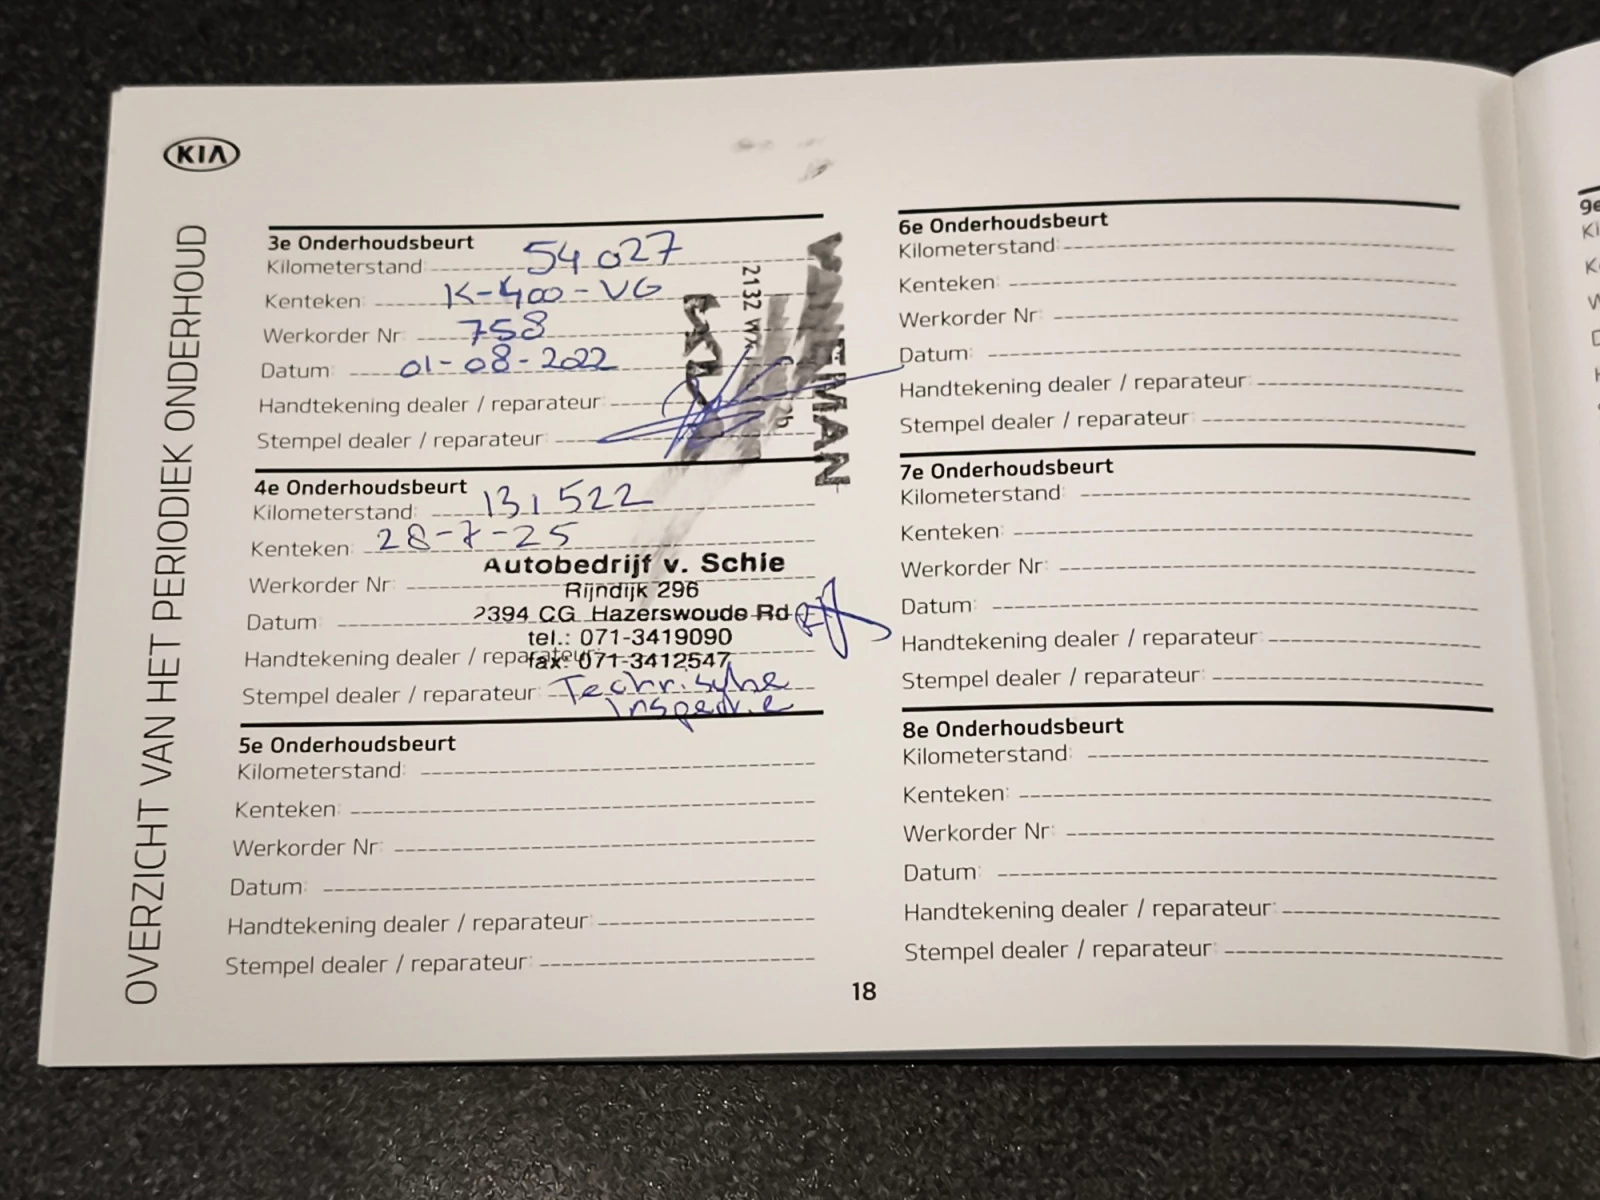 KIA
OVERZICHT VAN HET PERIODIEK ONDERHOUD
3e Onderhoudsbeurt
Kilometerstand: 54027
Kenteken: K-400-VG
Werkorder Nr: 758
Datum: 01-08-2022
Handtekening dealer / reparateur:
Stempel dealer / reparateur:
2132 WX
4e Onderhoudsbeurt
Kilometerstand: 131522
Kenteken: 28-7-25
Werkorder Nr:
Datum:
Handtekening dealer / reparateur:
Stempel dealer / reparateur: Technische
Inspectie
Autobedrijf v. Schie
Rijndijk 296
2394 CG Hazerswoude Rd
tel.: 071-3419090
fax: 071-3412547
5e Onderhoudsbeurt
Kilometerstand:
Kenteken:
Werkorder Nr:
Datum:
Handtekening dealer / reparateur:
Stempel dealer / reparateur:
6e Onderhoudsbeurt
Kilometerstand:
Kenteken:
Werkorder Nr:
Datum:
Handtekening dealer / reparateur:
Stempel dealer / reparateur:
7e Onderhoudsbeurt
Kilometerstand:
Kenteken:
Werkorder Nr:
Datum:
Handtekening dealer / reparateur:
Stempel dealer / reparateur:
8e Onderhoudsbeurt
Kilometerstand:
Kenteken:
Werkorder Nr:
Datum:
Handtekening dealer / reparateur:
Stempel dealer / reparateur:
18
9e